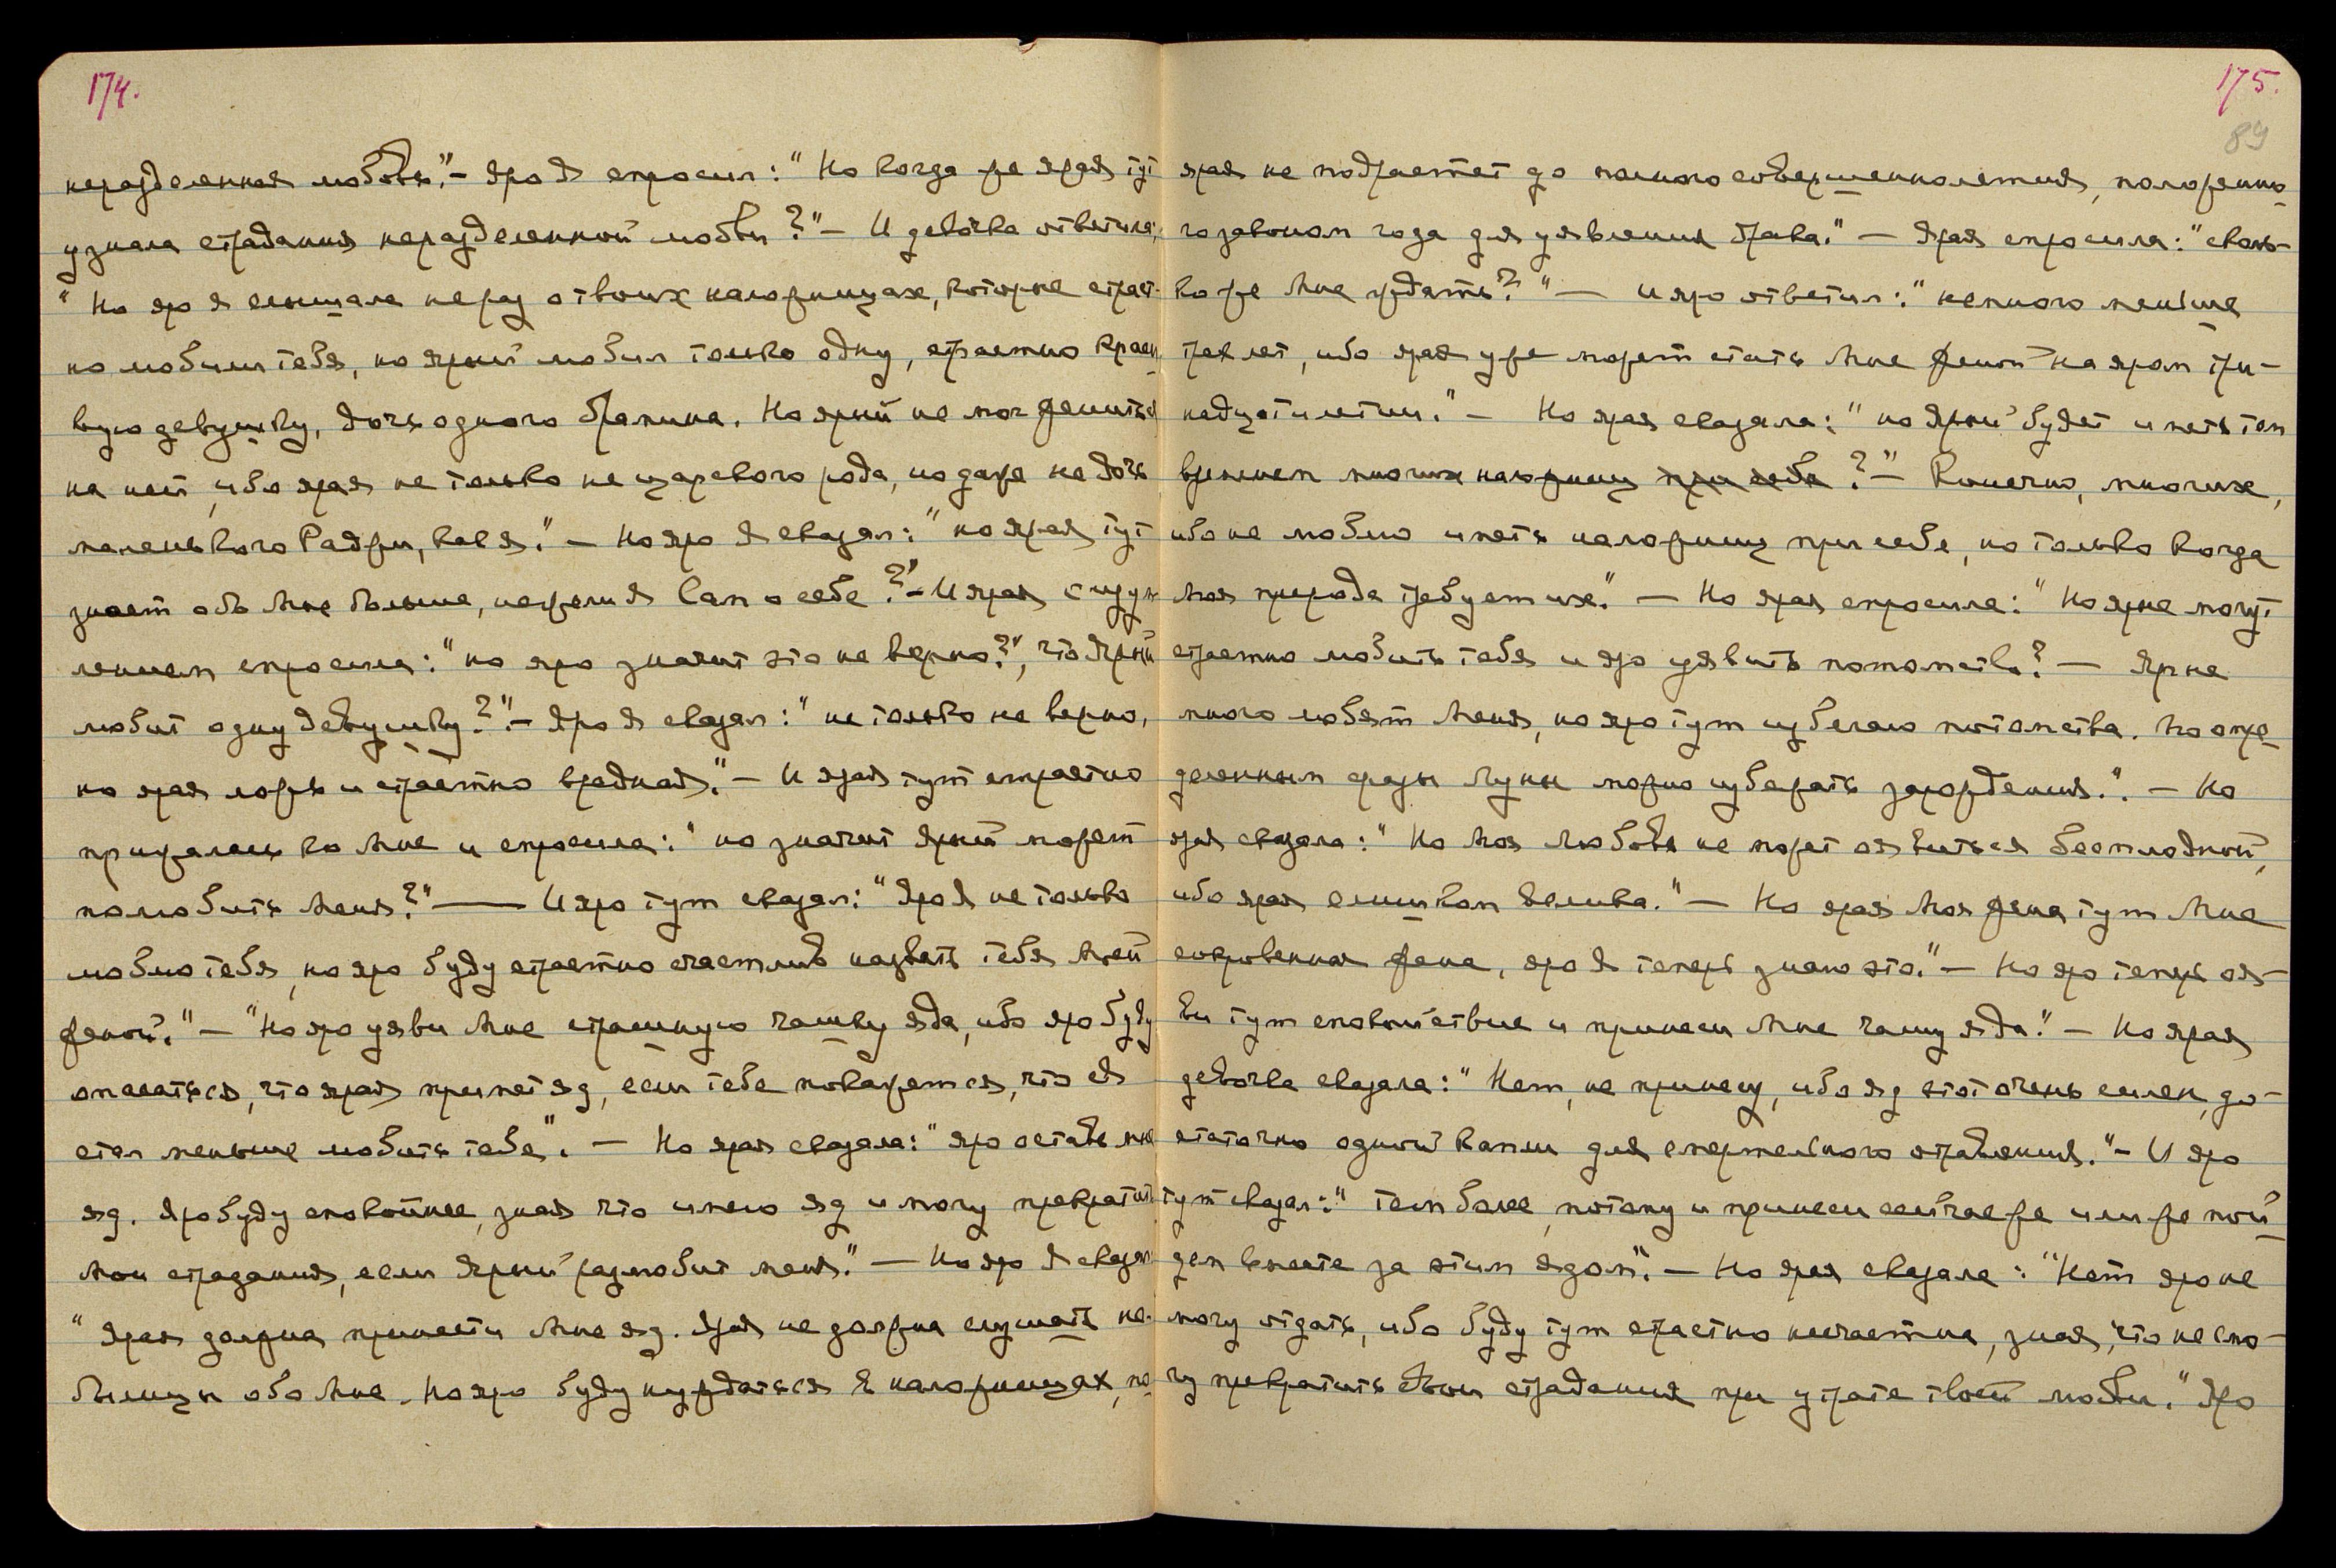 174.
неразделенная любовь." – Яро Я спросил: "Но когда же ярая тут
узнала страдания неразделенной любви?" – И девочка ответила:
"Но яро я слышала не раз о твоих наложницах, которые страст-
но любили тебя, но ярый любил только одну, страстно краси-
вую девушку, дочь одного брамина. Но ярый не мог жениться
на ней, ибо ярая не только не царского рода, но даже не дочь
маленького Раджи, как я." – Но яро Я сказал: "но ярая тут
знает обо Мне больше, нежели Я Сам о себе?" – И ярая с изум-
лением спросила: "но яро значит это не верно?", что Ярый
любит одну девушку?" – Яро Я сказал: "не только не верно,
но ярая ложь и страстно вредная." – И ярая тут страстно
прижалась ко Мне и спросила: "но значит Ярый может
полюбить Меня?" — И яро тут сказал: "Яро Я не только
люблю тебя, но яро буду страстно счастлив назвать тебя Моей
женой." – "Но яро уяви Мне страшную чашку яда, ибо яро буду
опасаться, что ярая примет яд, если тебе покажется, что Я
стал меньше любить тебя". – Но ярая сказала: "яро оставь мне
яд. Яро буду спокойнее, зная что имею яд и могу прекратить
мои страдания, если Ярый разлюбит меня." – Но яро Я сказал:
"Ярая должна принести Мне яд. Ярая не должна слушать не-
былицы обо Мне. Но яро буду нуждаться в наложницах, по-
175.
89
ярая не подрастет до полного совершеннолетия, положенно-
го законом года для уявления брака." – Ярая спросила: "сколь-
ко же Мне ждать?" – И яро ответил: "немного меньше
трех лет, ибо ярая уже может стать Мне женой на яром три-
надцатилетии." – Но ярая сказала: "но Ярый будет иметь тем
временем многих наложниц при себе?" – Конечно, многих,
ибо не люблю иметь наложниц при себе, но только когда
Моя природа требует их." – Но ярая спросила: "Но ярые могут
страстно любить тебя и яро уявить потомство? – Ярые
много любят Меня, но яро тут избегаю потомства. По опре-
деленным фазы Луны можно избегать зарождения.". – Но
ярая сказала: "Но Моя Любовь не может оявиться бесплодной,
ибо ярая слишком Велика." – Но ярая Моя жена тут Мне
сокровенная жена, яро Я теперь знаю это." – Но яро теперь оя-
ви тут спокойствие и принеси Мне чашу яда." – Но ярая
девочка сказала: "Нет, не принесу, ибо яд этот очень силен, до-
статочно одной капли для смертельного отравления." – И яро
тут сказал: "Тем более, потому и принеси сейчас же или же пой-
дем вместе за этим ядом". – Но ярая сказала: "Нет яро не
могу отдать, ибо буду тут страстно несчастна, зная, что не смо-
гу прекратить Свои страдания при утрате твоей любви." Яро